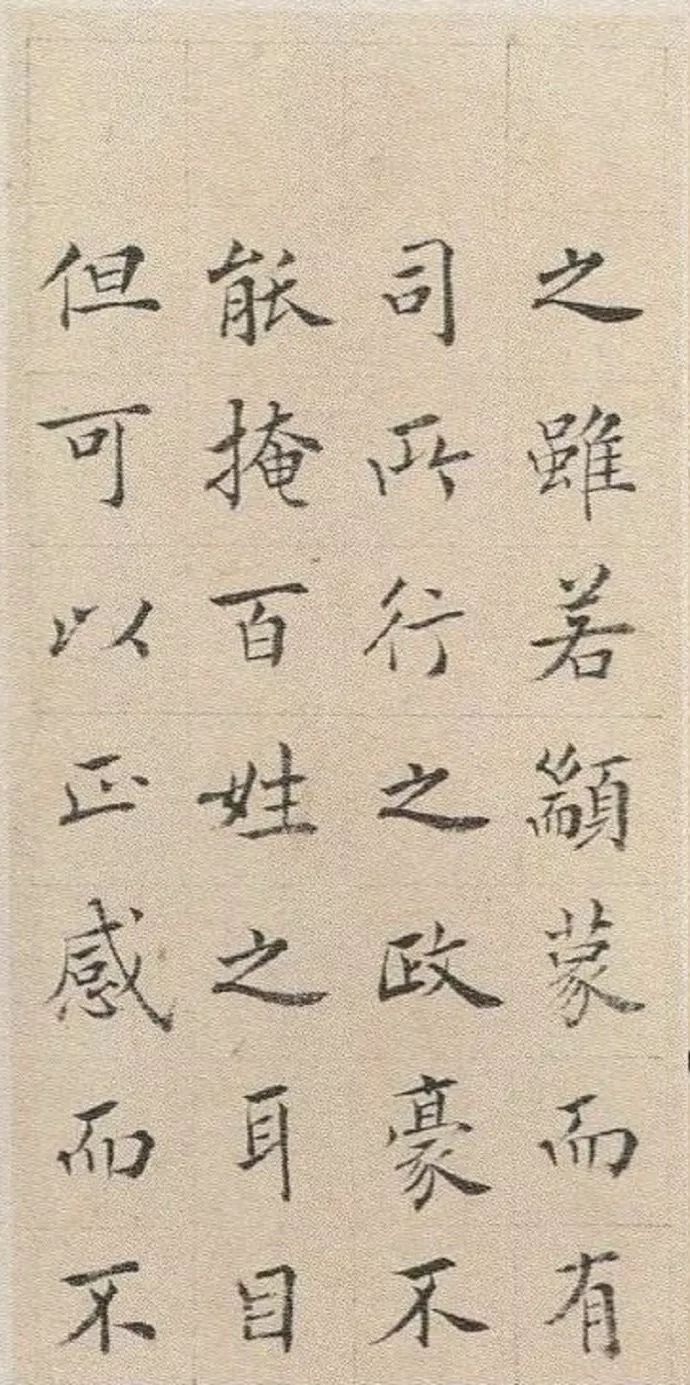 之雖若顓蒙而有
司所行之政豪不
能掩百姓之耳目
但可以正感而不